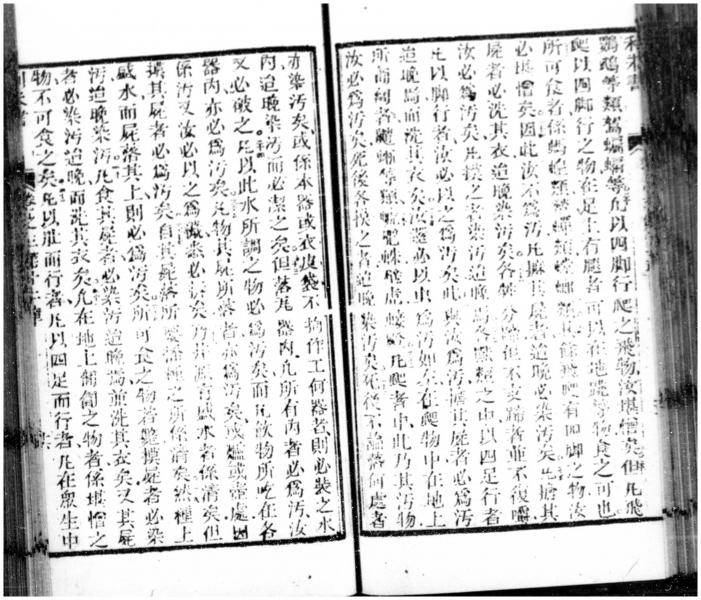 利未書
鸚鵡等類鷲蝙蝠等凡以四脚行爬之飛物汝堪憎矣但凡飛
爬以四脚行之物在足上有腿者可以在地跳等物食之可也
所可食者係螞蝗類蟋蟀類螳螂類其餘飛爬有四脚之物汝
必堪憎矣因此汝不爲汚凡撫其屍者迨晚必染汚矣凡擔其
屍者必洗其衣迨晚染汚矣各獸分蹄但不支蹄者並不復嚼
汝必爲汚矣凡摸之者染汚迨晚焉各獸類之中以四足行者
凡以脚行者汝必以之爲汚者矣此與汝爲汚矣撫其屍者必爲汚
迨晚焉而洗其衣矣汝還必以虫爲汚如左在爬物中在地上
所匍匐者等類凡爬者中此乃其汚物
汝必爲汚矣死後各摸之者迨晚染汚矣死後不論落何處者
亦染汚矣或係木器或衣皮袋不拘作工何器者則必裝之水
內迨晚染汚而必潔之矣但落凡器內凡所有內者必爲汚汝
又必破之凡以此水所調之物必爲汚矣而凡飲物所吃在各
器內亦必爲汚矣凡物其屍所落者亦爲汚矣或爐或竈處
係汚又汝必以之爲矣乃井源有盛水者係清矣但
摸其屍者必爲汚矣自其屍落所要播種之所係清矣然種上
盛水而屍落其上則必爲汚矣所可食之物若斃摸死者必染
汚迨晚染汚凡食其屍者必染汚迨晚焉並洗其衣矣又其屍
者必染汚迨晚而洗其衣矣凡在地上匍匐之物者係堪憎之
物不可食之矣凡以肚而行者凡以四足而行者凡在眾生中
利未書